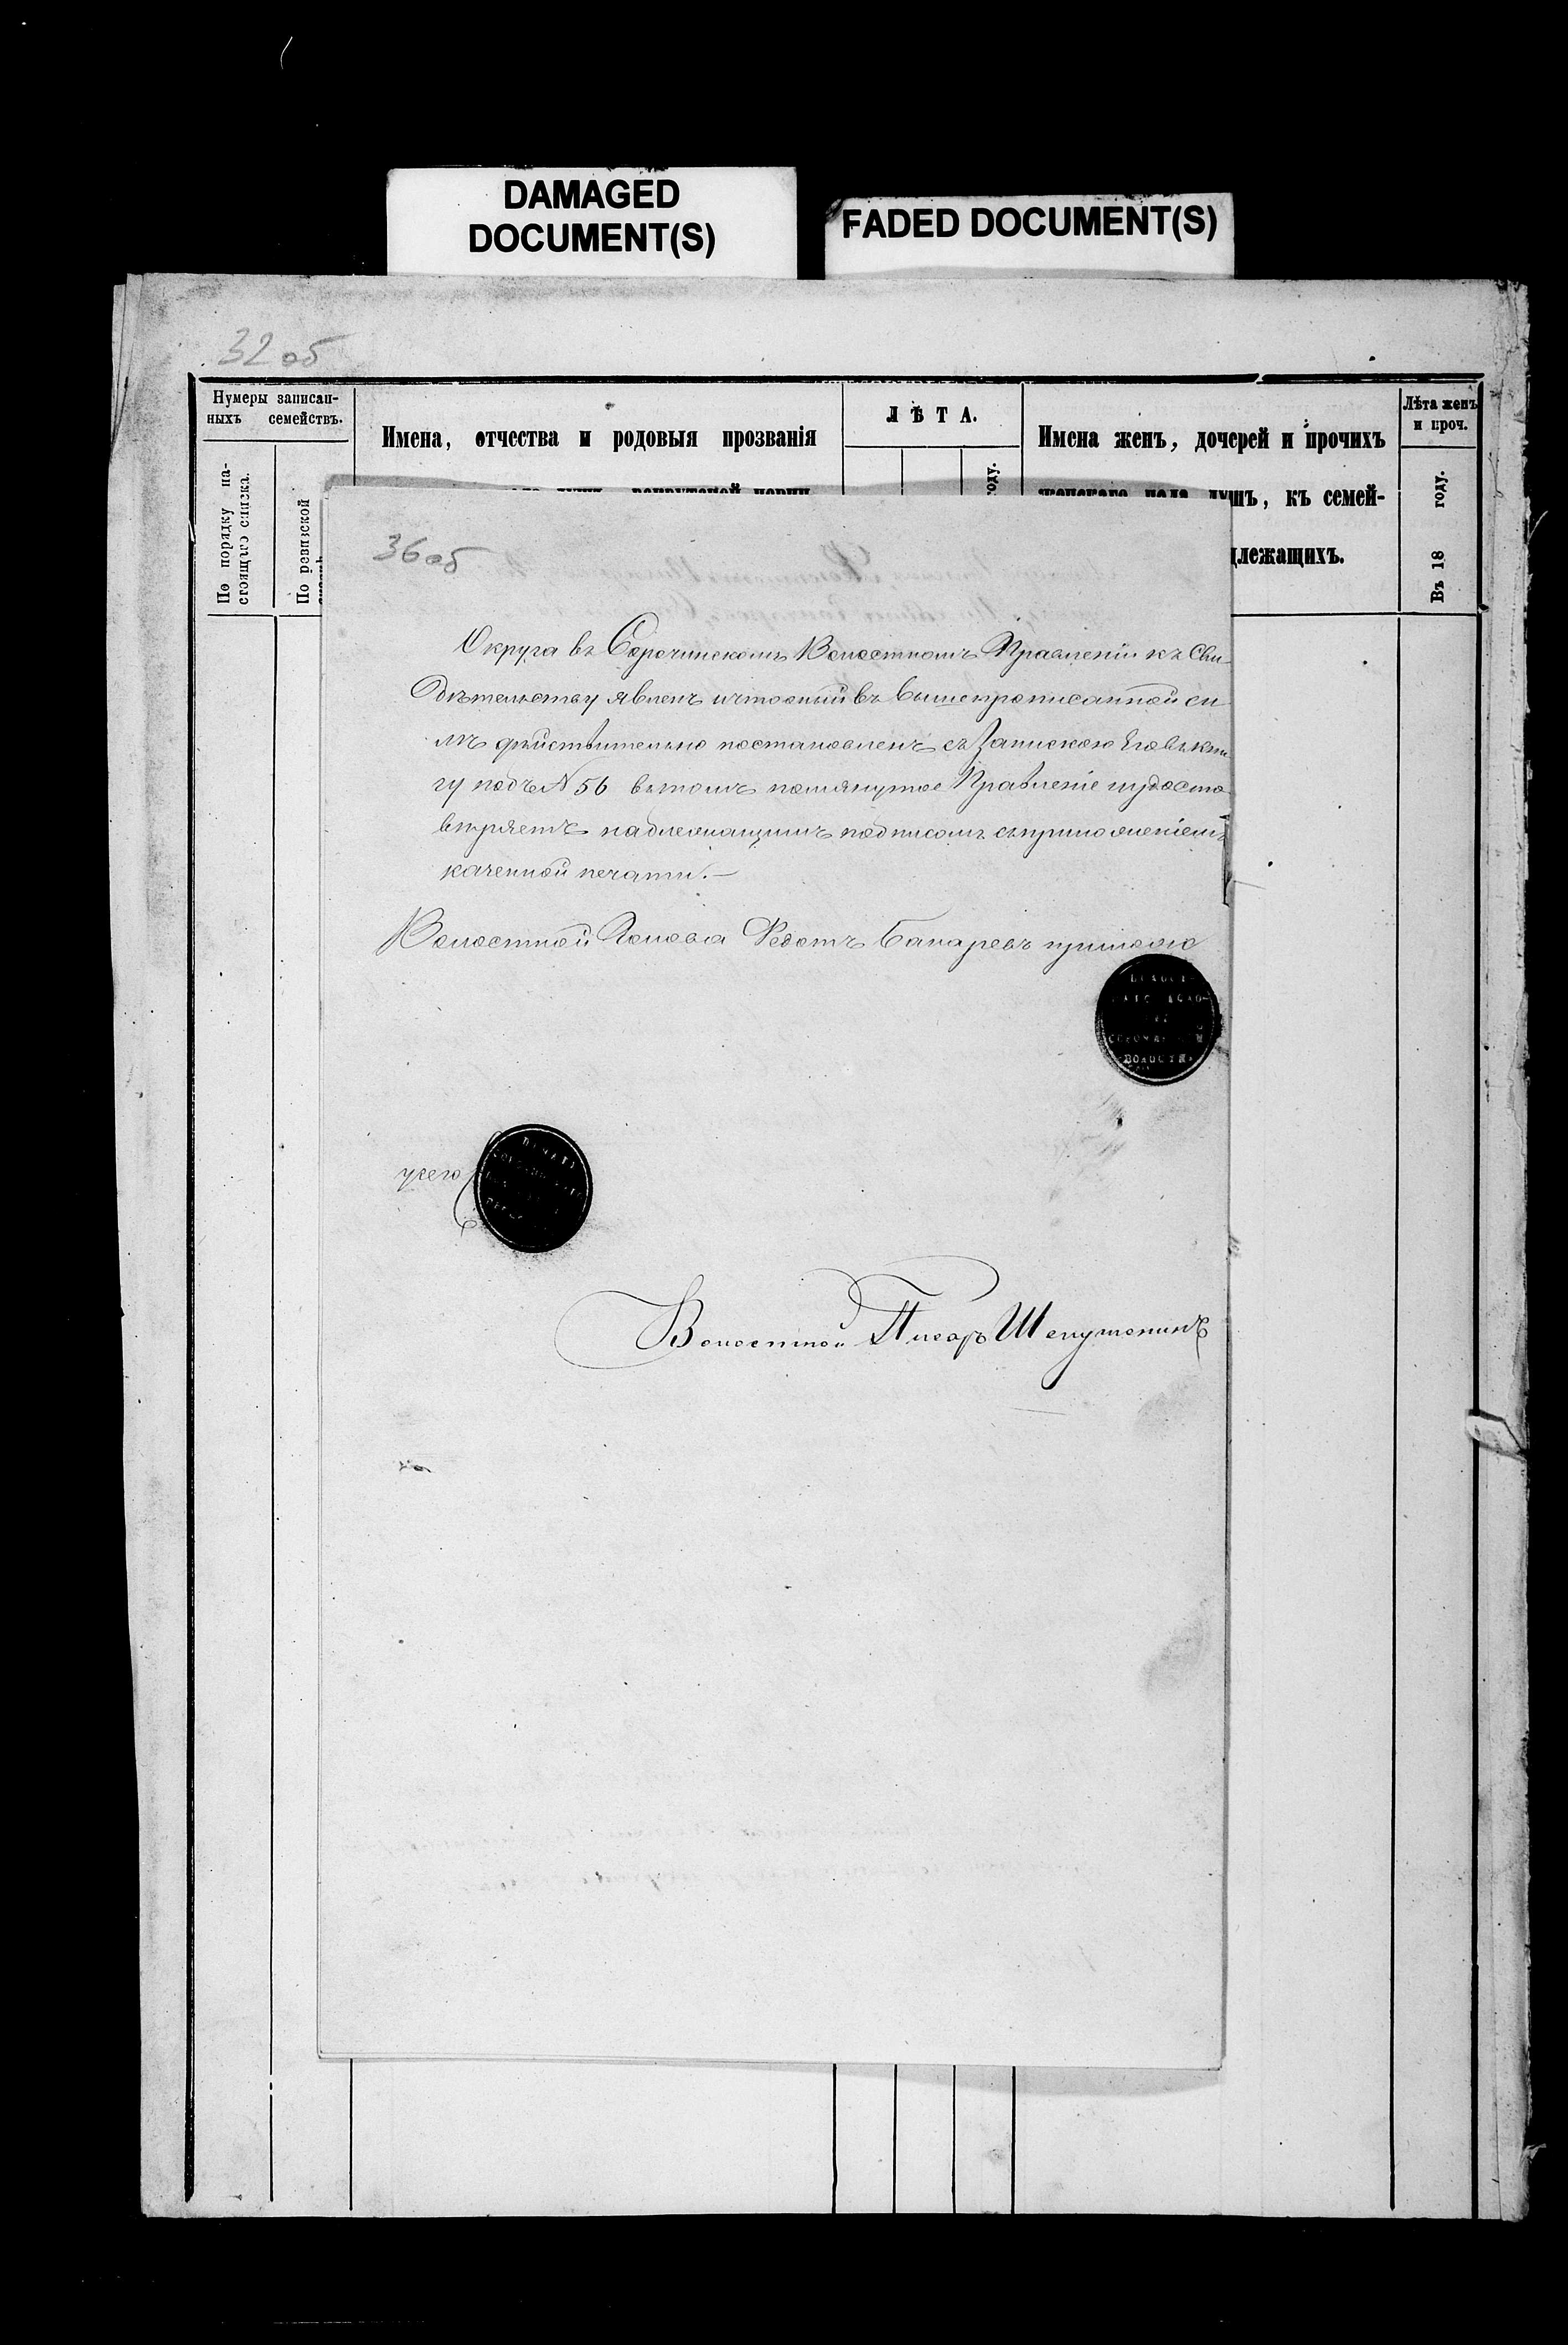 DAMAGED
DOCUMENT(S)
FADED DOCUMENT(S)
32 об
Нумеры записан-
ныхъ семействъ.
По порядку на-
стоящаго списка.
По ревизской
Имена, отчества и родовыя прозванія
ЛѢТА.
году.
Имена женъ, дочерей и прочихъ
женскаго пола душъ, къ семей-
длежащихъ.
Лѣта женъ
и проч.
Въ 18 году.
36 об
Округа въ Сорочинскомъ Волостномъ Правленіи къ Сви-
дѣтельству явленъ и что оный въ вышепрописанной си
лѣ дѣйствительно постановленъ съ Запискою Его въ кни
гу подъ N 56 въ томъ помянутое Правленіе и удосто
вѣряетъ надлежащимъ подписомъ съ приложеніемъ
казенной печати.—
Волостной Голова Федотъ приложо
ПЕЧАТЬ
ВОЛОСТИ
Волостной Писарь